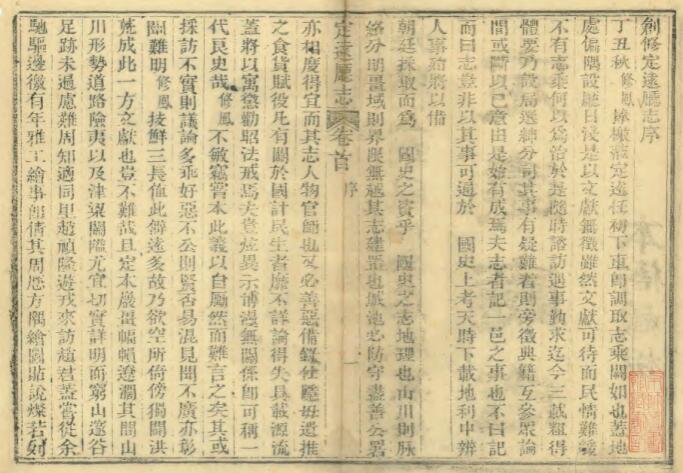 創修定遠廳志序
丁丑秋修鳳捧檄蒞定遠任初下車卽調取志乘闕如也蓋地
處偏隅設廳日淺是以文獻無徵雖然文獻可待而民情難緩
不有志乘何以爲治於是隨時諮訪遇事勤求迄今三載粗得
體要乃設局選紳分司其事有疑難者則旁徵典籍互參衆論
間或斷以己意由是始有成焉夫志者記一邑之事也不曰記
而曰志豈非以其事可通於 國史上考天時下載地利中辨
人事葯將以備
朝廷採取而爲 國史之資乎 國史之志地理也山川則脉
絡分明畺域則界限無遁其志建置也城池必防守盡善公署
定遠廳志 卷首 序 一
亦相度得宜而其志人物官師也又必善惡備敘仕隱毋遺推
之食貨賦役凡有關於國計民生者靡不詳論得失具載源流
蓋將以寓懲勸昭法戒焉夫豈炫異示博漫無關係卽可稱一
代良史哉修鳳不敏竊嘗本此義以自勵然而難言之矣其或
採訪不實則議論多乖好惡不公則賢否易混見聞不廣亦彰
闡難明修鳳技鮮三長値此僻遠多故乃欲空所倚傍獨闢洪
荒成此一方文獻也豈不難哉且定本巖畺幅𢄙遼濶其間山
川形勢道路險夷以及津梁關隘尤宜切實詳明而窮山邃谷
足跡未過慮難周知適同里趙楨隆遊戎來訪趙君蓋嘗從余
馳驅邊徼有年雅工繪事能倩其周歷方隅繪圖貼說燦若列